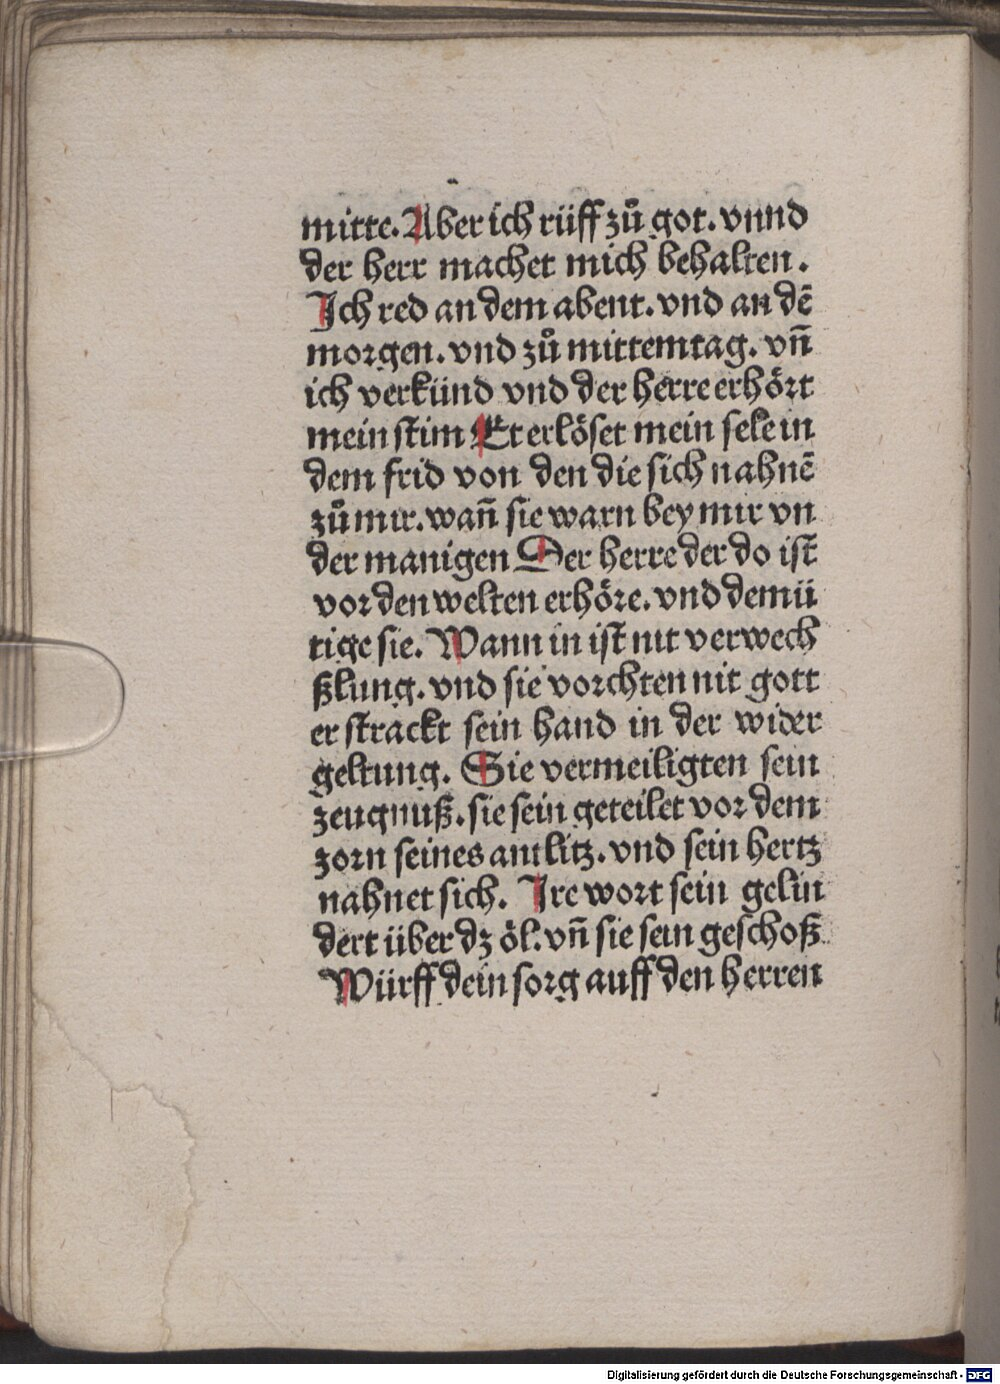 mitte. Aber ich rüff zů got. vnnd
der herr machet mich behalten.
Ich red an dem abent. vnd an dē
morgen. vnd zů mittemtag. vn̄
ich verkünd vnd der herre erhört
mein stim Er erlöset mein sele in
dem frid von den die sich nahnē
zů mir. wan̄ sie warn bey mir vn
der manigen Der herre der do ist
vor den welten erhöre. vnd demü
tige sie. Wann in ist nit verwech
ßlung. vnd sie vorchten nit gott
er strackt sein hand in der wider
geltung. Sie vermeiligten sein
zeugnuß. sie sein geteilet vor dem
zorn seines antlitz. vnd sein hertz
nahnet sich. Ire wort sein gelin
dert über dz öl. vn̄ sie sein geschoß
Würff dein sorg auff den herren
Digitalisierung gefördert durch die Deutsche Forschungsgemeinschaft - DFG